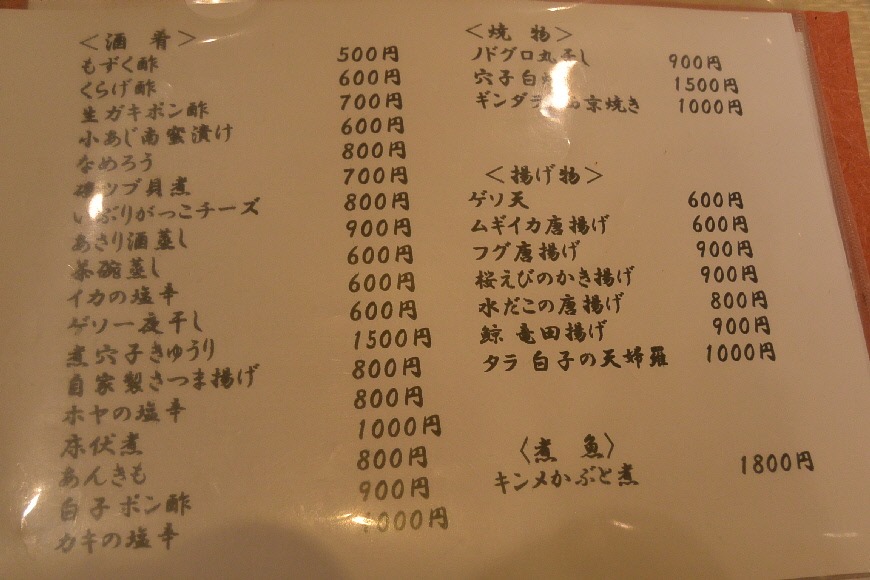 ＜酒 肴＞
もずく酢 500円
くらげ酢 600円
生ガキポン酢 700円
小あじ南蜜漬け 600円
なめろう 800円
ツブ貝煮 700円
いぶりがっこチーズ 800円
あさり酒蒸し 900円
茶碗蒸し 600円
イカの塩辛 600円
ゲソ一夜干し 600円
煮穴子きゅうり 1500円
自家製さつま揚げ 800円
ホヤの塩辛 800円
床伏煮 1000円
あんきも 800円
白子ポン酢 900円
カキの塩辛 1000円
＜焼 物＞
ノドグロ丸干し 900円
穴子白 1500円
ギンダラ 京焼き 1000円
＜揚げ物＞
ゲソ天 600円
ムギイカ唐揚げ 600円
フグ唐揚げ 900円
桜えびのかき揚げ 900円
水だこの唐揚げ 800円
鯨 竜田揚げ 900円
タラ 白子の天婦羅 1000円
〈煮 魚〉
キンメかぶと煮 1800円